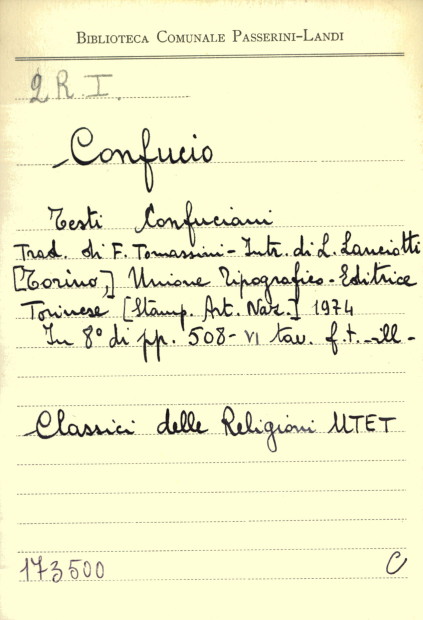 BIBLIOTECA COMUNALE PASSERINI-LANDI
2 R. I.
Confucio
Testi Confuciani
Trad. di F. Tomassini - Intr. di L. Lanciotti
[Torino,] Unione Tipografico-Editrice
Torinese [Stamp. Art. Naz.] 1974
In 8° di pp. 508 - VI tav. f.t. - ill -
Classici delle Religioni UTET
173500 C